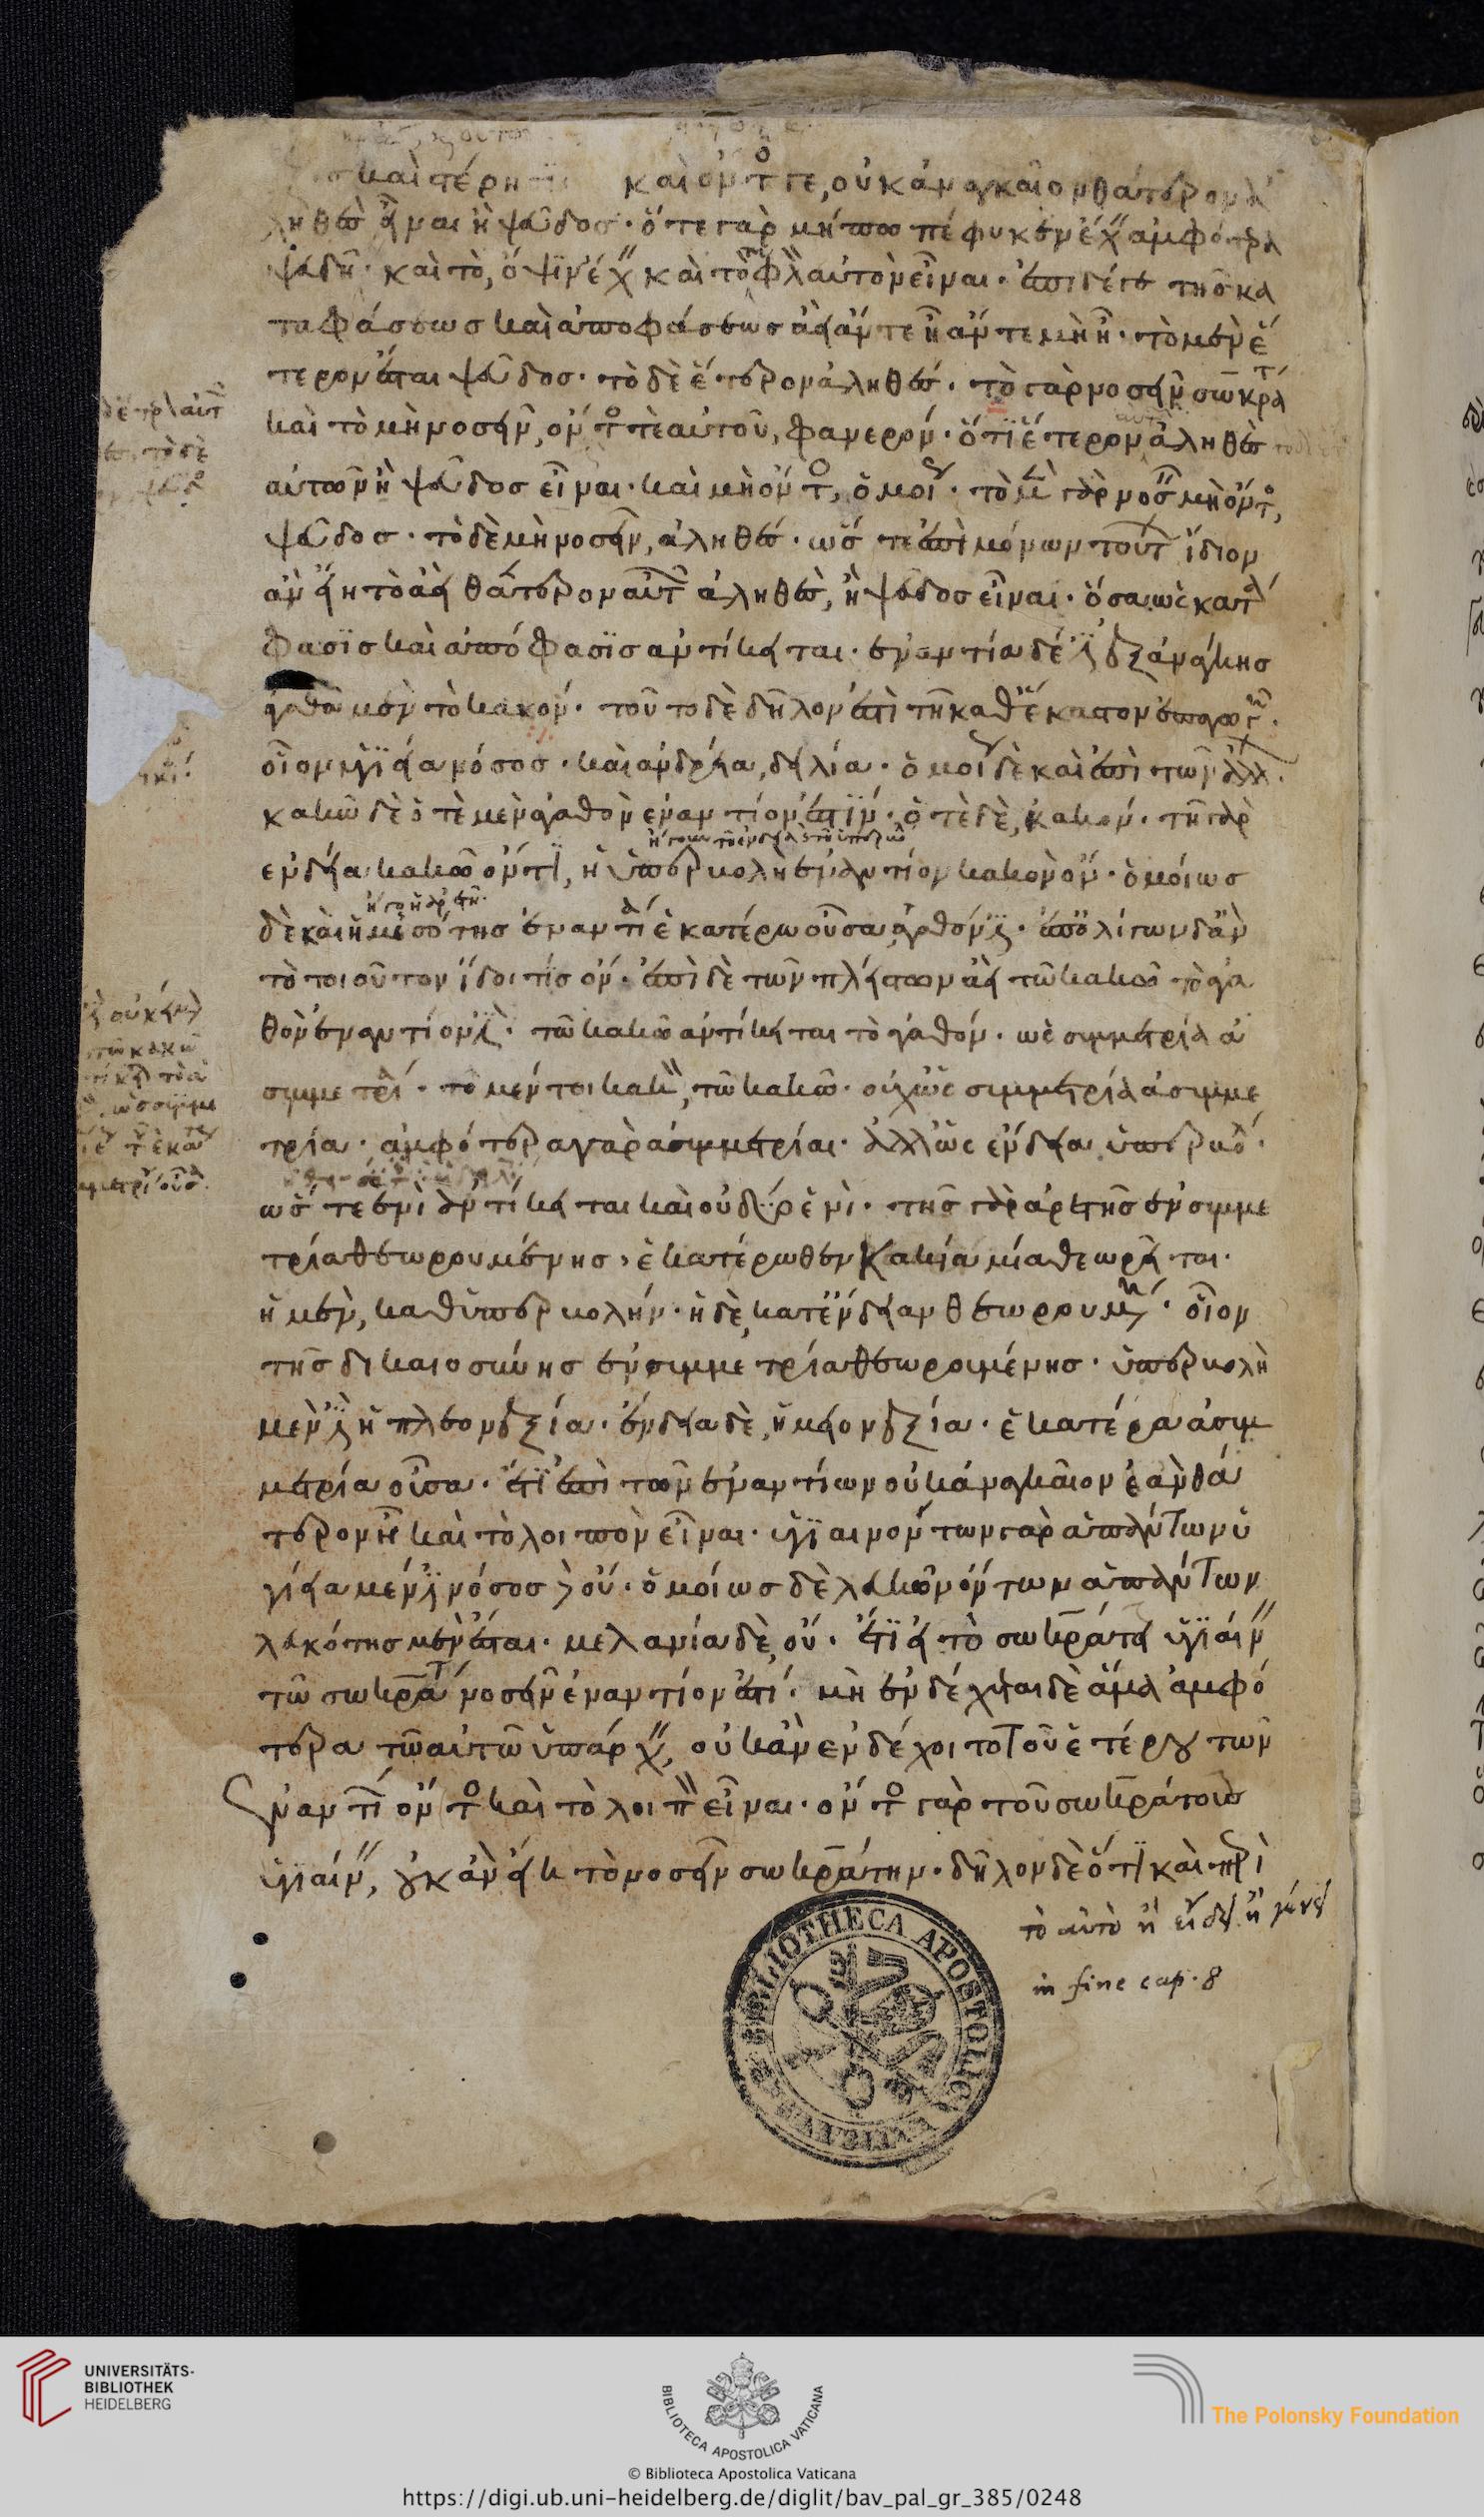 καὶ στέρη καὶ ὄντος γε, οὐκ ἀναγκαῖον θάτερον ἀ
ληθὲς εἶναι ἢ ψεῦδος· ὅτε γὰρ μήπω πέφυκεν ἔχειν ἀμφότερα
ψευδῆ· καὶ τὸ, ὄψιν ἔχειν καὶ τὸ τυφλὸν αὐτὸν εἶναι· ἐπὶ δέ γε τῆς κα
ταφάσεως καὶ ἀποφάσεως ἀεὶ ἄν τε ᾖ ἄν τε μὴ ᾖ· τὸ μὲν ἕ
τερον ἔσται ψεῦδος· τὸ δὲ ἕτερον ἀληθές· τὸ γὰρ νοσεῖν σωκράτ
καὶ τὸ μὴ νοσεῖν, ὄντος τε αὐτοῦ, φανερόν· ὅτι ἕτερον ἀληθὲς
αὐτῶν ἢ ψεῦδος εἶναι· καὶ μὴ ὄντος, ὁμοίως· τὸ μὲν γὰρ νοσεῖν μὴ ὄντος,
ψεῦδος· τὸ δὲ μὴ νοσεῖν, ἀληθές· ὥστε ἐπὶ μόνων τούτων ἴδιον
ἂν εἴη τὸ ἀεὶ θάτερον αὐτῶν ἀληθὲς, ἢ ψεῦδος εἶναι· ὅσα ὡς κατά
φασις καὶ ἀπόφασις ἀντίκειται· ἐναντίον δέ ἐστιν ἐξ ἀνάγκης
ἀγαθῶ μὲν τὸ κακόν· τοῦτο δὲ δῆλον ἐστὶ τῆ καθ' ἕκαστον ἐπαγωγῆ·
οἷον ὑγιεία νόσος· καὶ ἀνδρεία, δειλία· ὁμοίως δὲ καὶ ἐπὶ τῶν ἄλλων·
κακῶ δὲ ὁτὲ μὲν ἀγαθὸν ἐναντίον ἐστίν· ὁτὲ δὲ, κακόν· τῆ γὰρ
ἐνδεία κακῶ ὄντι, ἡ ὑπερβολὴ ἐναντίον κακὸν ὄν· ὁμοίως
δὲ καὶ ἡ μεσότης ἐναντία ἑκατέρω οὖσα ἀγαθόν ἐστιν· ἐπ' ὀλίγων δ' ἂν
τὸ τοιοῦτον ἴδοι τίς ὄν· ἐπὶ δὲ τῶν πλείστων ἀεὶ τῶ κακῶ τὸ ἀγα
θὸν ἐναντίον ἐστι· τῶ κακῶ ἀντίκειται τὸ ἀγαθόν· ὡς συμμετρία ἀ
συμμετρία· τὸ μέντοι κακὸν, τῶ κακῶ· οὐχ ὡς συμμετρία ἀσυμμε
τρία· ἀμφότερα γὰρ ἀσυμμετρίαι· ἀλλ' ὡς ἐνδεία ὑπερβολή·
ὥστε ἑνὶ ἀντίκειται καὶ οὐδέτερον ἑνὶ· τῆς γὰρ ἀρετῆς ἐν συμμε
τρία θεωρουμένης, ἑκατέρωθεν κακία μία θεωρεῖται·
ἡ μὲν, καθ' ὑπερβολήν· ἡ δὲ, κατ' ἔνδειαν θεωρουμένη· οἷον
τῆς δικαιοσύνης ἐν συμμετρία θεωρουμένης· ὑπερβολὴ
μὲν ἐστιν ἡ πλεονεξία· ἔνδεια δὲ, ἡ μειονεξία· ἑκατέρα ἀσυμ
μετρία οὖσα· ἔτι ἐπὶ τῶν ἐναντίων οὐκ ἀναγκαῖον ἐὰν θά
τερον ᾖ καὶ τὸ λοιπὸν εἶναι· ὑγιαινόντων γὰρ ἁπάντων ὑ
γίεια μέν ἐστι νόσος δ' οὔ· ὁμοίως δὲ λευκῶν ὄντων ἁπάντων
λευκότης μὲν ἔσται· μελανία δὲ, οὔ· ἔτι εἰ τὸ σωκράτη ὑγιαίνειν
τῶ σωκράτην νοσεῖν ἐναντίον ἐστί· μὴ ἐνδέχεται δὲ ἅμα ἀμφό
τερα τῶ αὐτῶ ὑπάρχειν, οὐκ ἂν ἐνδέχοιτο τοῦ ἑτέρου τῶν
ἐναντίων ὄντος καὶ τὸ λοιπὸν εἶναι· ὄντος γὰρ τοῦ σωκράτους
ὑγιαίνειν, οὐκ ἂν εἴη τὸ νοσεῖν σωκράτην· δῆλον δὲ ὅτι καὶ περὶ
τὸ αὐτὸ ἢ εἴδει ἢ γένει
in fine cap. 8
BIBLIOTHECA APOSTOLICA VATICANA
UNIVERSITÄTS-
BIBLIOTHEK
HEIDELBERG
BIBLIOTECA APOSTOLICA VATICANA
The Polonsky Foundation
© Biblioteca Apostolica Vaticana
https://digi.ub.uni-heidelberg.de/diglit/bav_pal_gr_385/0248